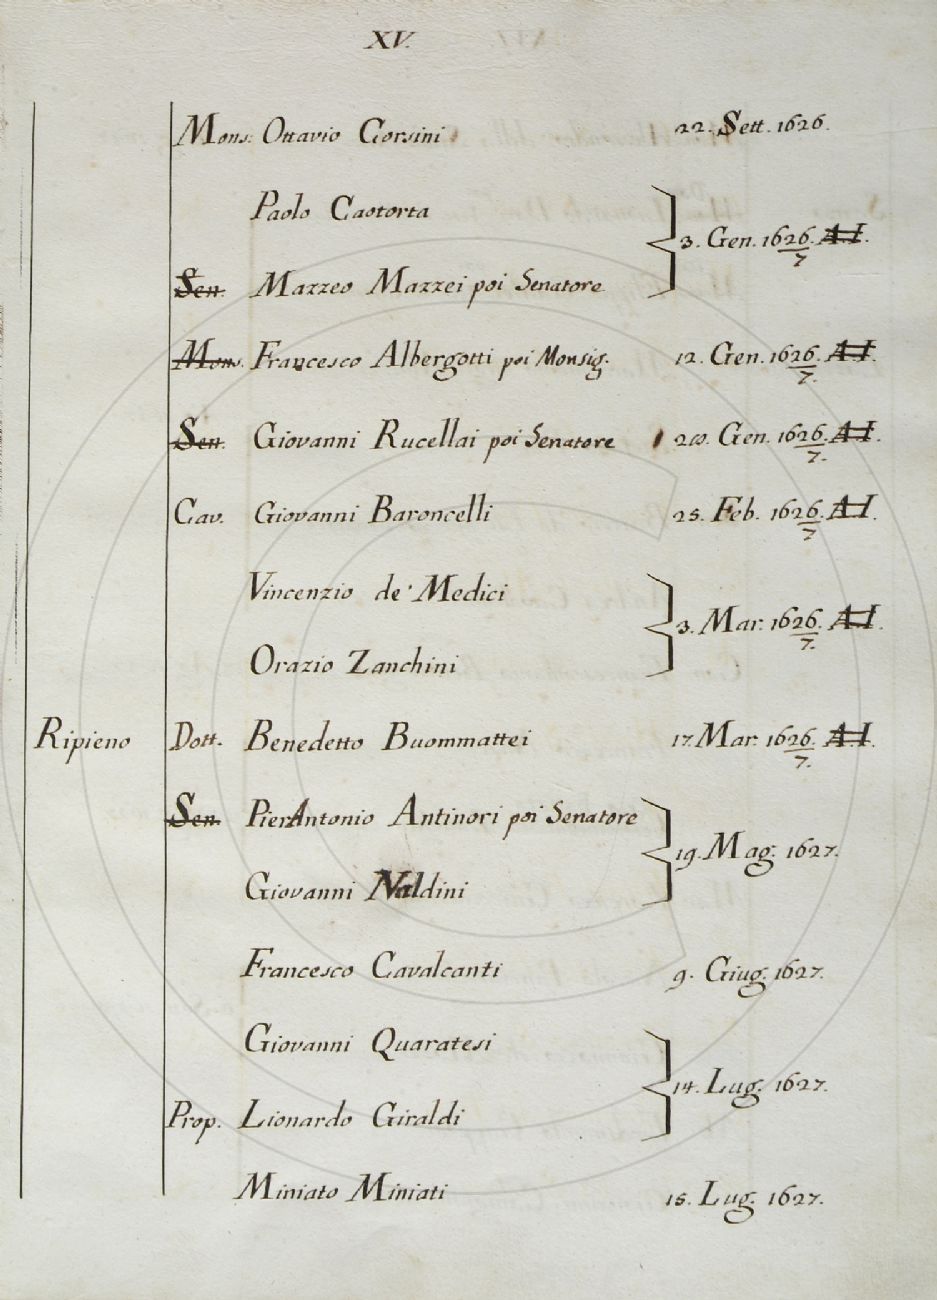 XV.
Mons. Ottavio Corsini 22. Sett. 1626.
Paolo Caotorta
3. Gen. 1626/7. A.I.
Sen. Mazzeo Mazzei poi Senatore
Mons. Francesco Albergotti poi Monsig. 12. Gen. 1626/7. A.I.
Sen. Giovanni Rucellai poi Senatore 20. Gen. 1626/7. A.I.
Cav. Giovanni Baroncelli 25. Feb. 1626/7 A.I.
Vincenzio de' Medici
3. Mar. 1626/7. A.I.
Orazio Zanchini
Ripieno Dott. Benedetto Buommattei 17. Mar. 1626/7. A.I.
Sen. PierAntonio Antinori poi Senatore
19. Mag. 1627.
Giovanni Naldini
Francesco Cavalcanti 9. Giug. 1627.
Giovanni Quaratesi
14. Lug. 1627.
Prop. Lionardo Giraldi
Miniato Miniati 15. Lug. 1627.